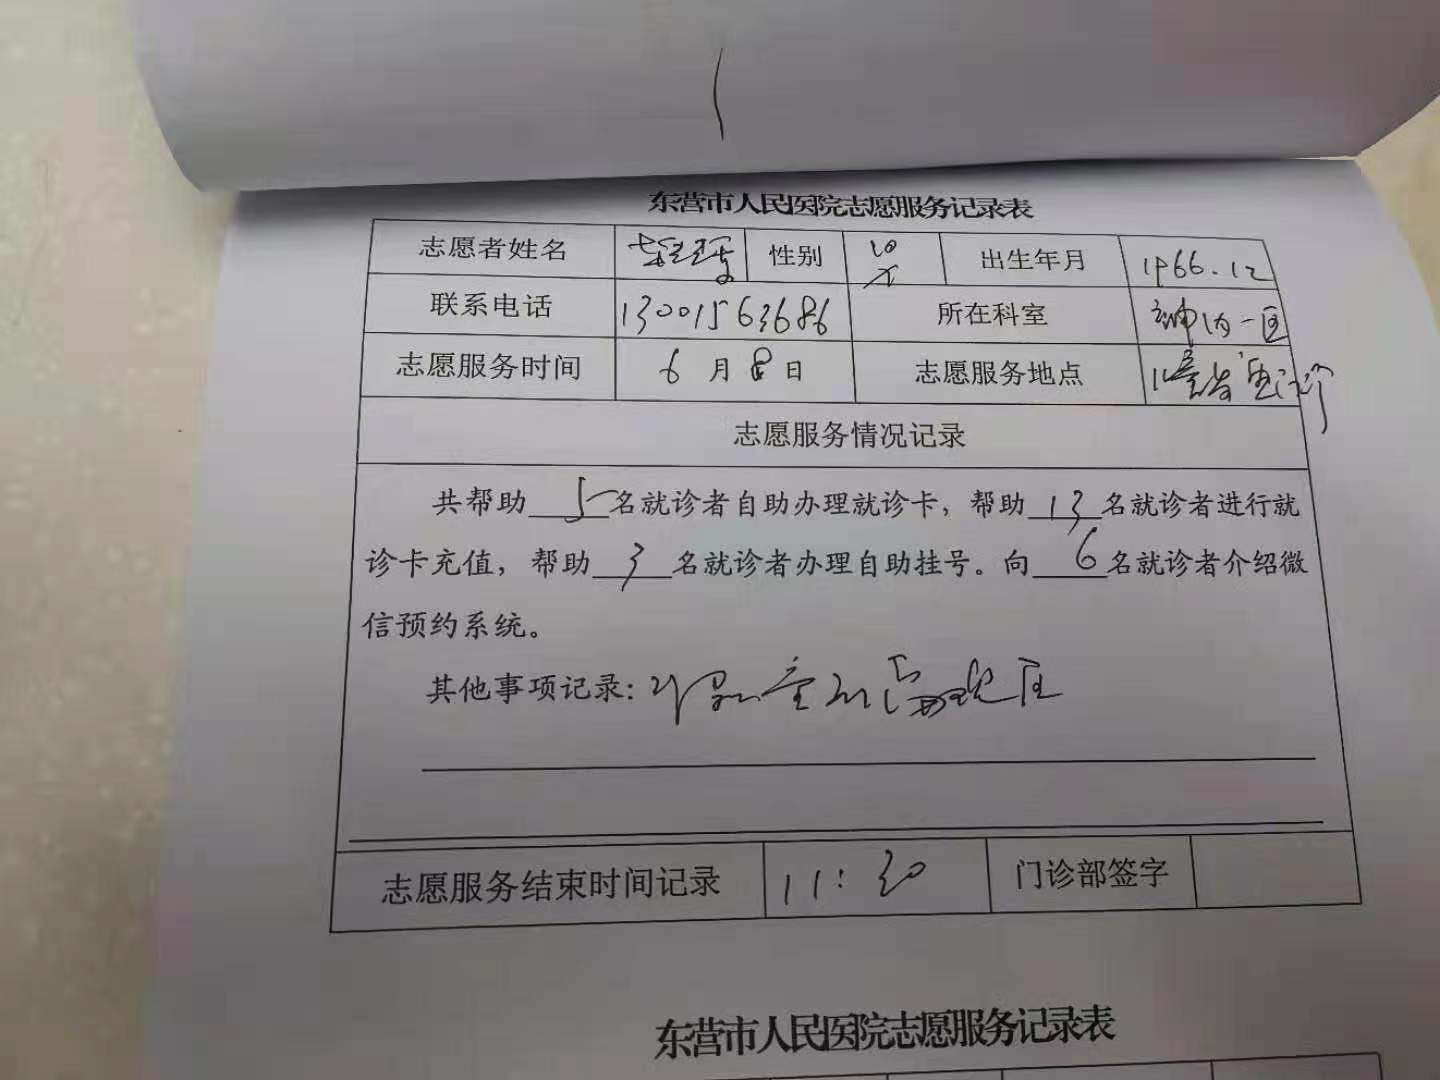 东营市人民医院志愿服务记录表
志愿者姓名 性别 出生年月 1966.12
联系电话 13001563686 所在科室 神内一区
志愿服务时间 6月8日 志愿服务地点 门诊
志愿服务情况记录
共帮助 5 名就诊者自助办理就诊卡，帮助 13 名就诊者进行就
诊卡充值，帮助 3 名就诊者办理自助挂号。向 6 名就诊者介绍微
信预约系统。
其他事项记录：
志愿服务结束时间记录 11:30 门诊部签字
东营市人民医院志愿服务记录表